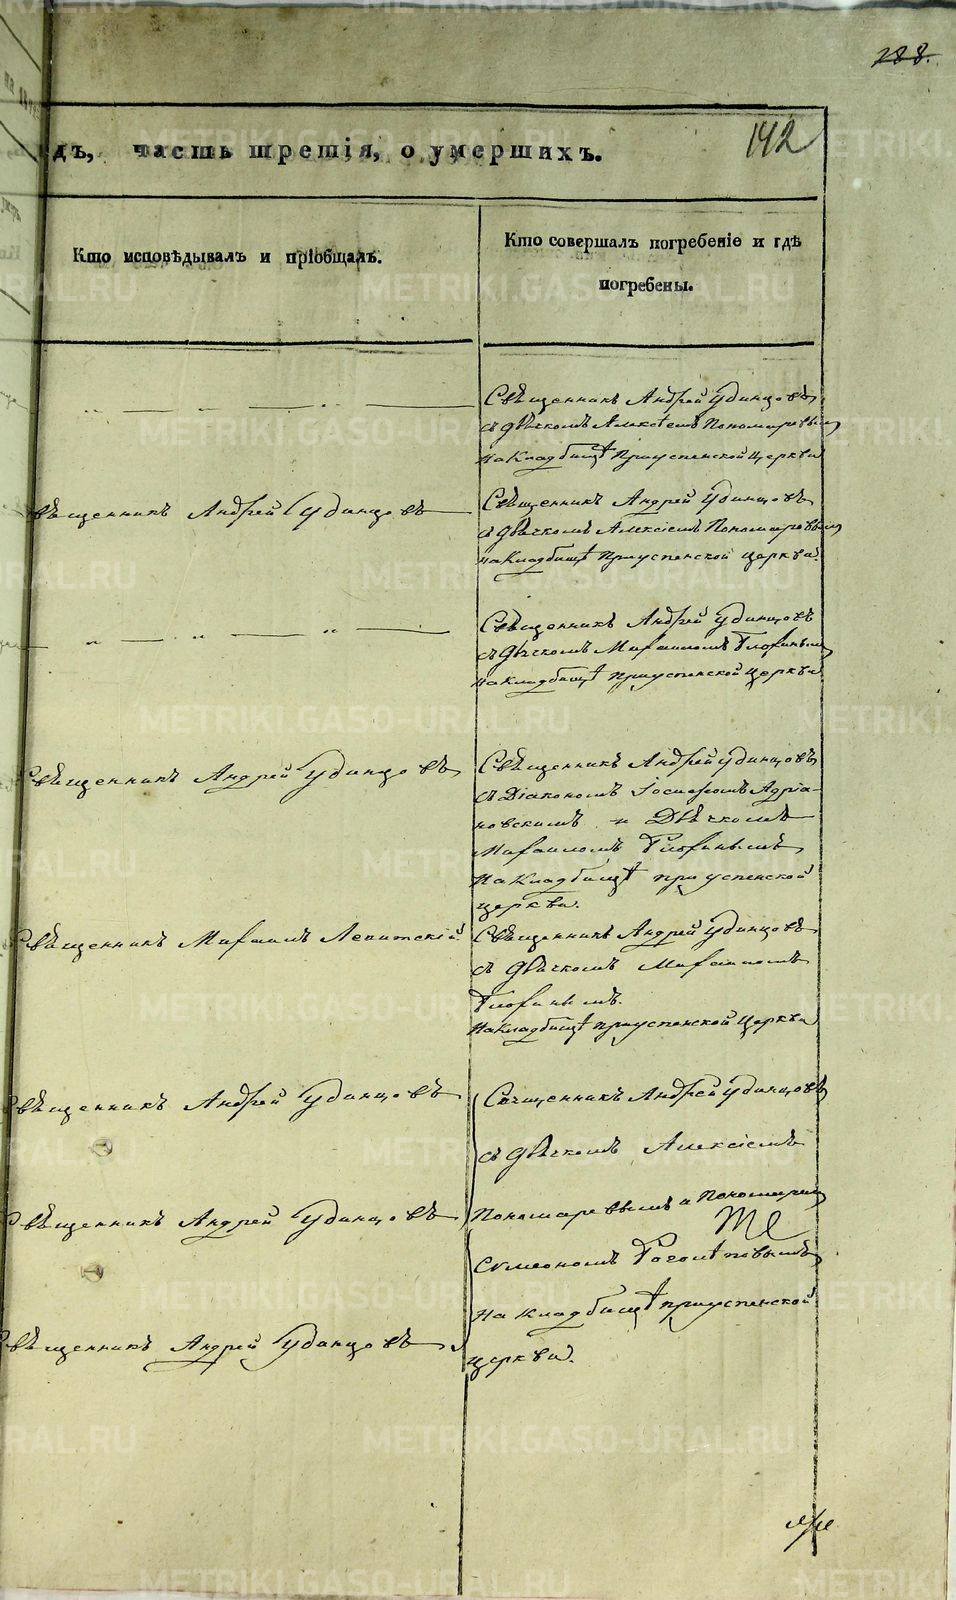 288.
142
дъ, часть третія, о умершихъ.
Кто исповѣдывалъ и пріобщалъ.
Кто совершалъ погребеніе и гдѣ
погребены.
Священникъ Андрей Удинцовъ
съ дьячкомъ Алексѣемъ Пономаревымъ
на кладбищѣ при успенской церкви
Священникъ Андрей Удинцовъ
Священникъ Андрей Удинцовъ
съ дьячкомъ Алексіемъ Пономаревымъ
на кладбищѣ при успенской церкви.
Священникъ Андрей Удинцовъ
съ дьячкомъ Михаиломъ
на кладбищѣ при успенской церкви
Свѣщенникъ Андрей Удинцовъ
Свѣщенникъ Андрей Удинцовъ
съ Діакономъ Іосифомъ Адріа-
новскимъ и Дьячкомъ
Михаиломъ
на кладбищѣ при успенской
церкви.
Свѣщенникъ Михаилъ Левитскій.
Свѣщенникъ Андрей Удинцовъ
съ дьячкомъ Михаиломъ
на кладбищѣ при успенской церкви
Свѣщенникъ Андрей Удинцовъ
Священникъ Андрей Удинцовъ
съ дьячкомъ Алексіемъ
Свѣщенникъ Андрей Удинцовъ
Пономаревымъ и Пономаремъ
Симеономъ
на кладбищѣ при успенской
Свѣщенникъ Андрей Удинцовъ
церкви.
METRIKI.GASO-URAL.RU